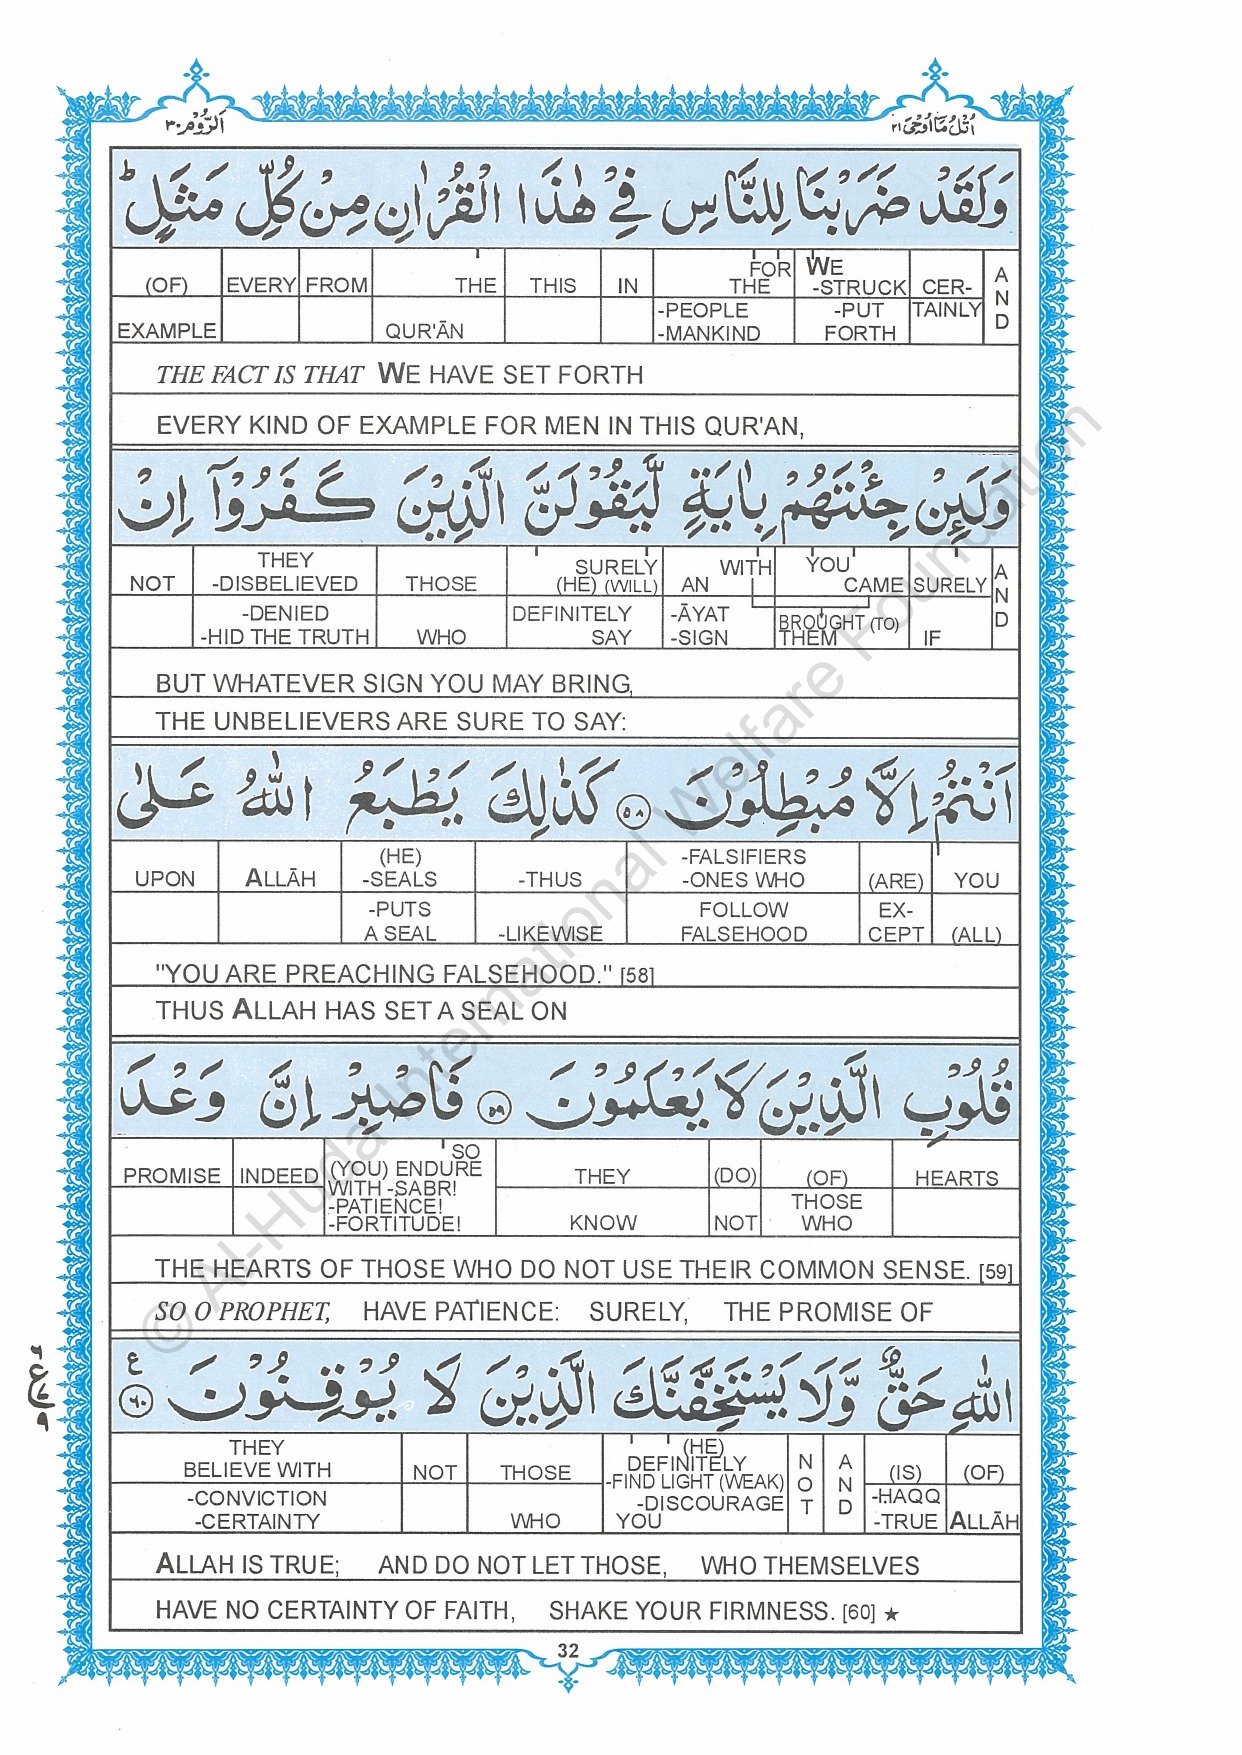 اَلرُّوْم ٣٠
اُتْلُ مَآ اُوْحِیَ ٢١
وَلَقَدْ ضَرَبْنَا لِلنَّاسِ فِیْ هٰذَا الْقُرْاٰنِ مِنْ كُلِّ مَثَلٍ ؕ
(OF) EVERY FROM THE THIS IN FOR THE WE -STRUCK CER- AND
EXAMPLE QUR'ĀN -PEOPLE -MANKIND -PUT FORTH TAINLY
THE FACT IS THAT WE HAVE SET FORTH
EVERY KIND OF EXAMPLE FOR MEN IN THIS QUR'AN,
وَلَىِٕنْ جِئْتَهُمْ بِاٰیَةٍ لَّیَقُوْلَنَّ الَّذِیْنَ كَفَرُوْۤا اِنْ
NOT THEY -DISBELIEVED THOSE SURELY (HE) (WILL) AN WITH YOU CAME SURELY AND
-DENIED -HID THE TRUTH WHO DEFINITELY SAY -ĀYAT -SIGN BROUGHT (TO) THEM IF
BUT WHATEVER SIGN YOU MAY BRING,
THE UNBELIEVERS ARE SURE TO SAY:
اَنْتُمْ اِلَّا مُبْطِلُوْنَ ٥٨ كَذٰلِكَ یَطْبَعُ اللّٰهُ عَلٰی
UPON ALLĀH (HE) -SEALS -THUS -FALSIFIERS -ONES WHO (ARE) YOU
-PUTS A SEAL -LIKEWISE FOLLOW FALSEHOOD EX- CEPT (ALL)
"YOU ARE PREACHING FALSEHOOD." [58]
THUS ALLAH HAS SET A SEAL ON
قُلُوْبِ الَّذِیْنَ لَا یَعْلَمُوْنَ ٥٩ فَاصْبِرْ اِنَّ وَعْدَ
PROMISE INDEED SO (YOU) ENDURE WITH -SABR! -PATIENCE! -FORTITUDE! THEY (DO) (OF) HEARTS
KNOW NOT THOSE WHO
THE HEARTS OF THOSE WHO DO NOT USE THEIR COMMON SENSE. [59]
SO O PROPHET, HAVE PATIENCE: SURELY, THE PROMISE OF
اللّٰهِ حَقٌّ وَّلَا یَسْتَخِفَّنَّكَ الَّذِیْنَ لَا یُوْقِنُوْنَ ٦٠ ع
THEY BELIEVE WITH NOT THOSE (HE) DEFINITELY -FIND LIGHT (WEAK) -DISCOURAGE YOU NOT AND (IS) (OF)
-CONVICTION -CERTAINTY WHO -ḤAQQ -TRUE ALLĀH
ALLAH IS TRUE; AND DO NOT LET THOSE, WHO THEMSELVES
HAVE NO CERTAINTY OF FAITH, SHAKE YOUR FIRMNESS. [60] ★
32
© Al-Huda International Welfare Foundation